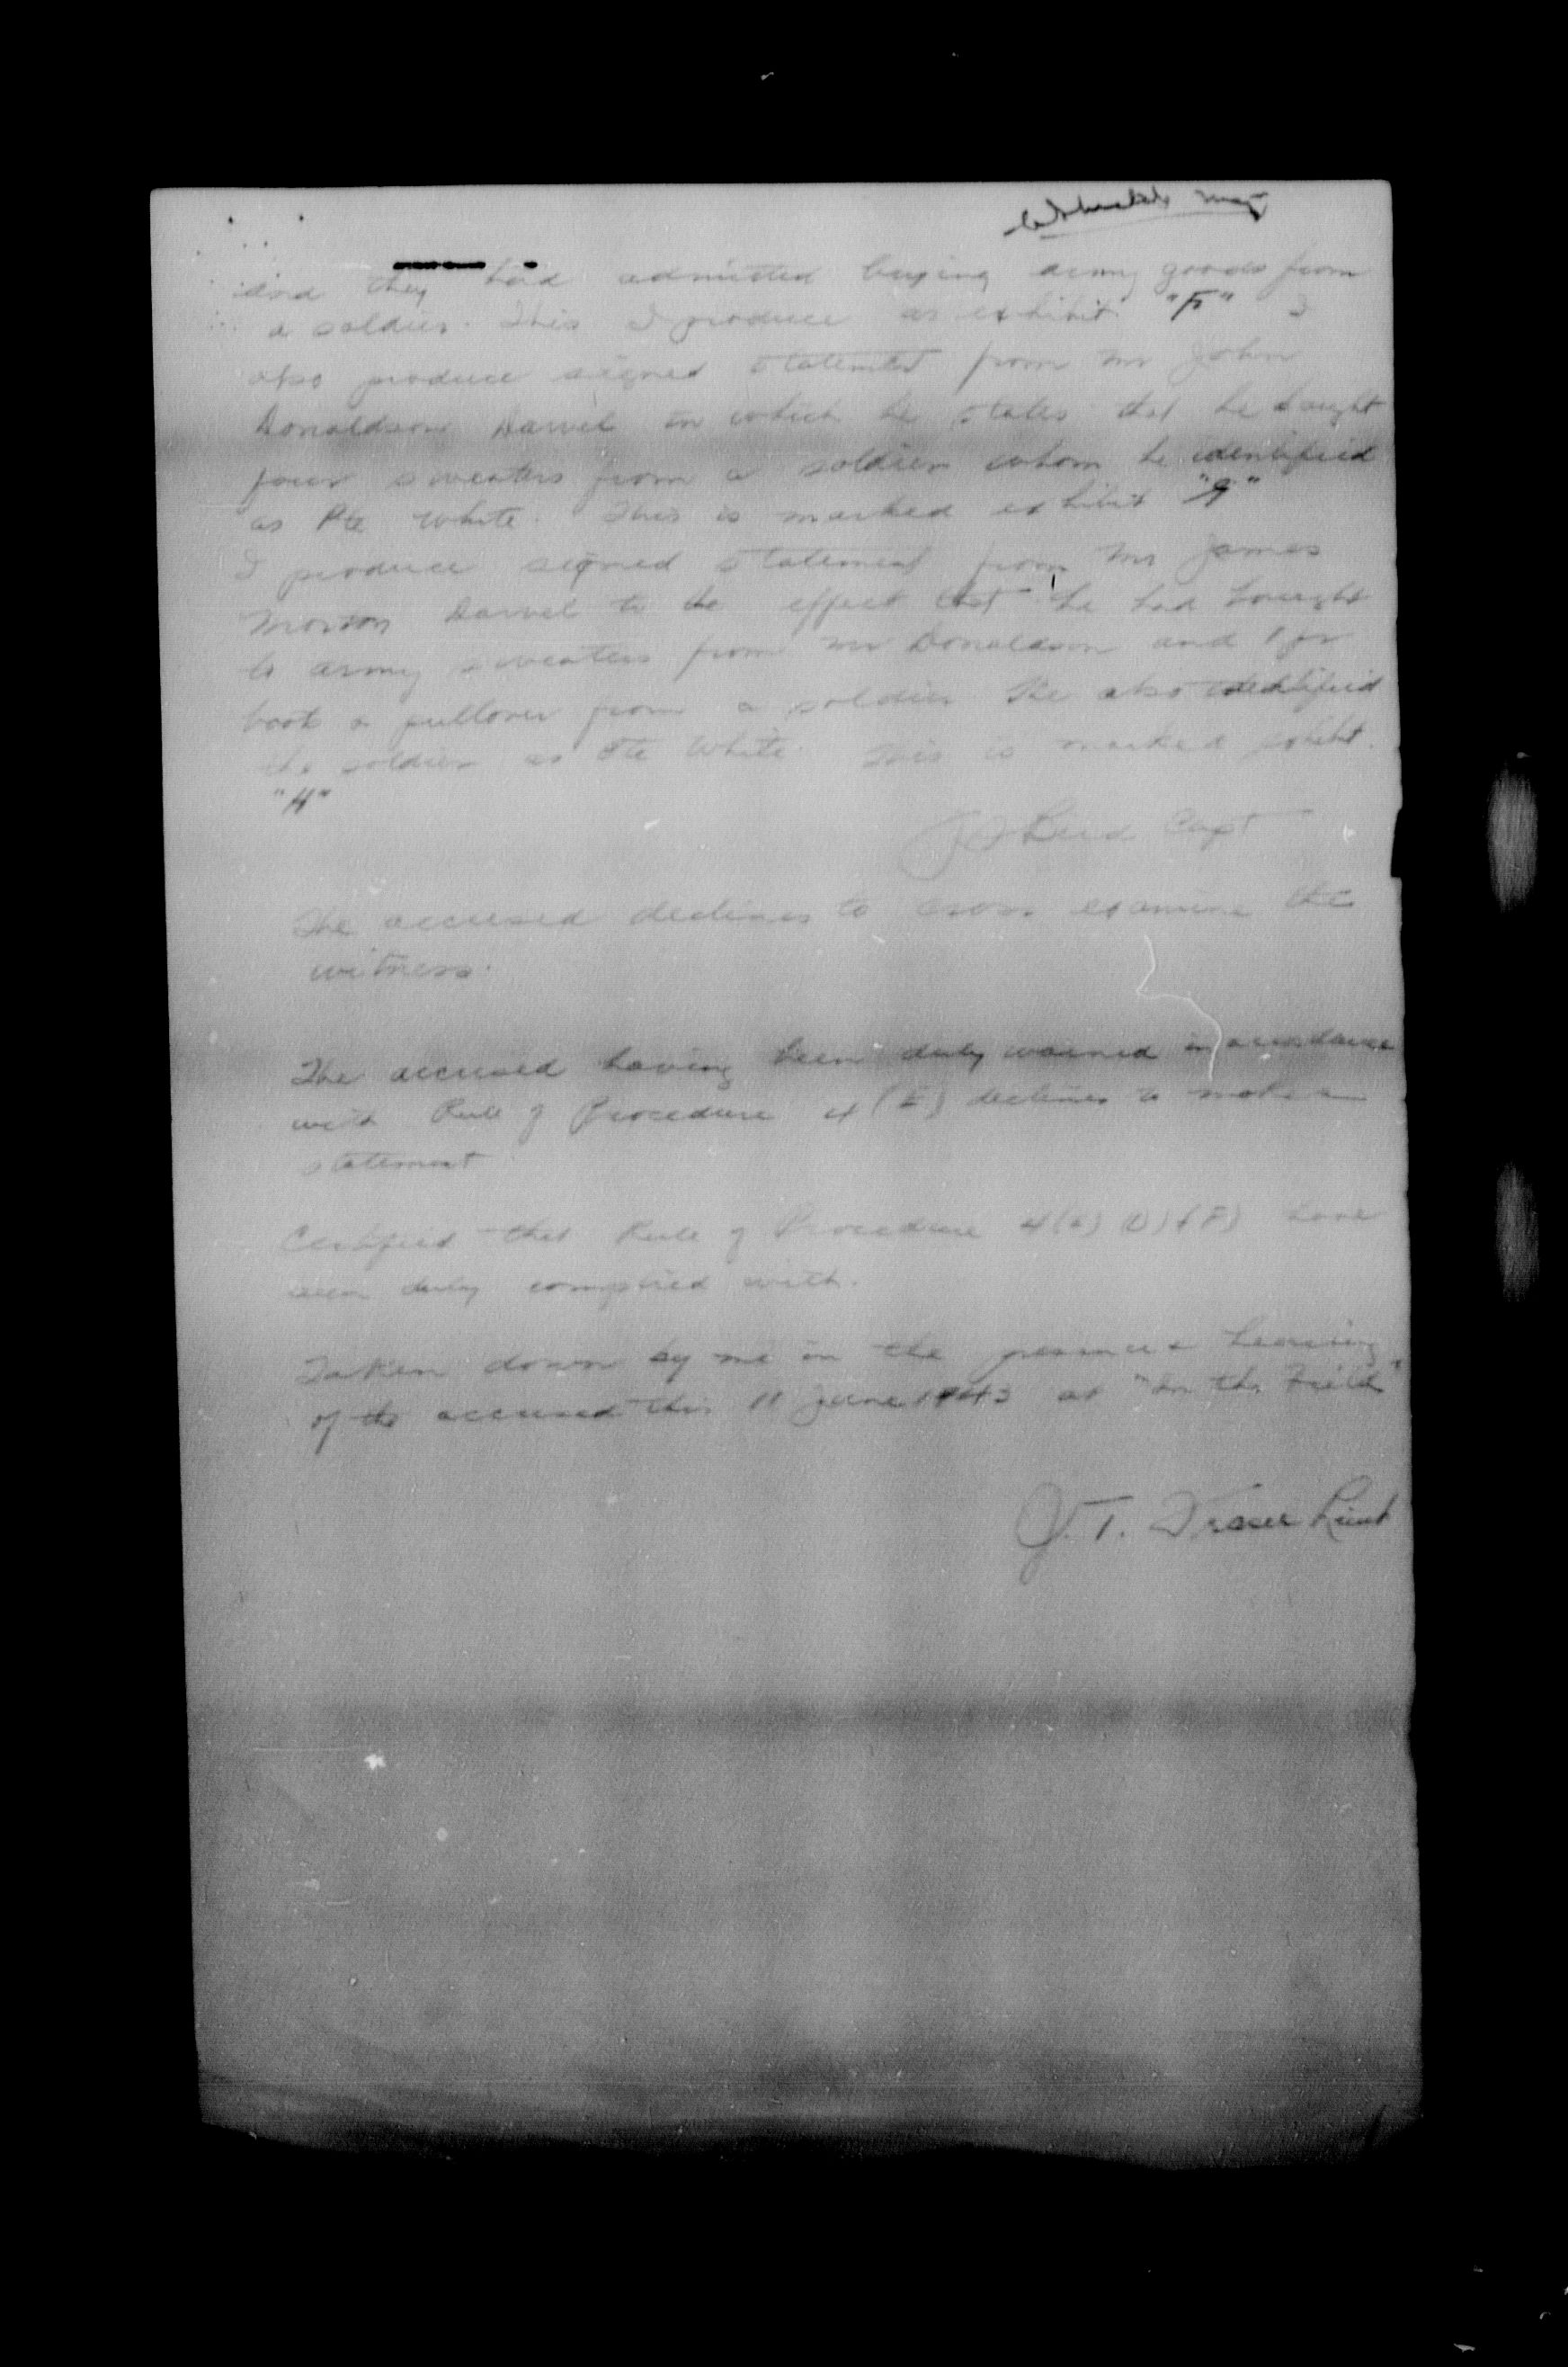 and they had admitted buying army goods from
a soldier. This I produce as exhibit "F" I
also produce signed statement from Mr John
Donaldson Darvel in which he states that he bought
four sweaters from a soldier whom he identified
as Pte White. This is marked exhibit "G"
I produce signed statement from Mr James
Morton Darvel to the effect that he had bought
army sweaters from Mr Donaldson and 1 pr
boots & pullover from a soldier He also identified
the soldier as Pte White. This is marked exhibit.
"H"
Capt
The accused declines to cross examine the
witness.
The accused having been duly warned in accordance
with Rule of Procedure 4 (E) declines to make a
statement
Certified that Rule of Procedure 4(C) (D) (F) have
been duly complied with.
Taken down by me in the presence & hearing
of the accused this 11 June 1943 at "In the Field"
J.T. Fraser Lieut